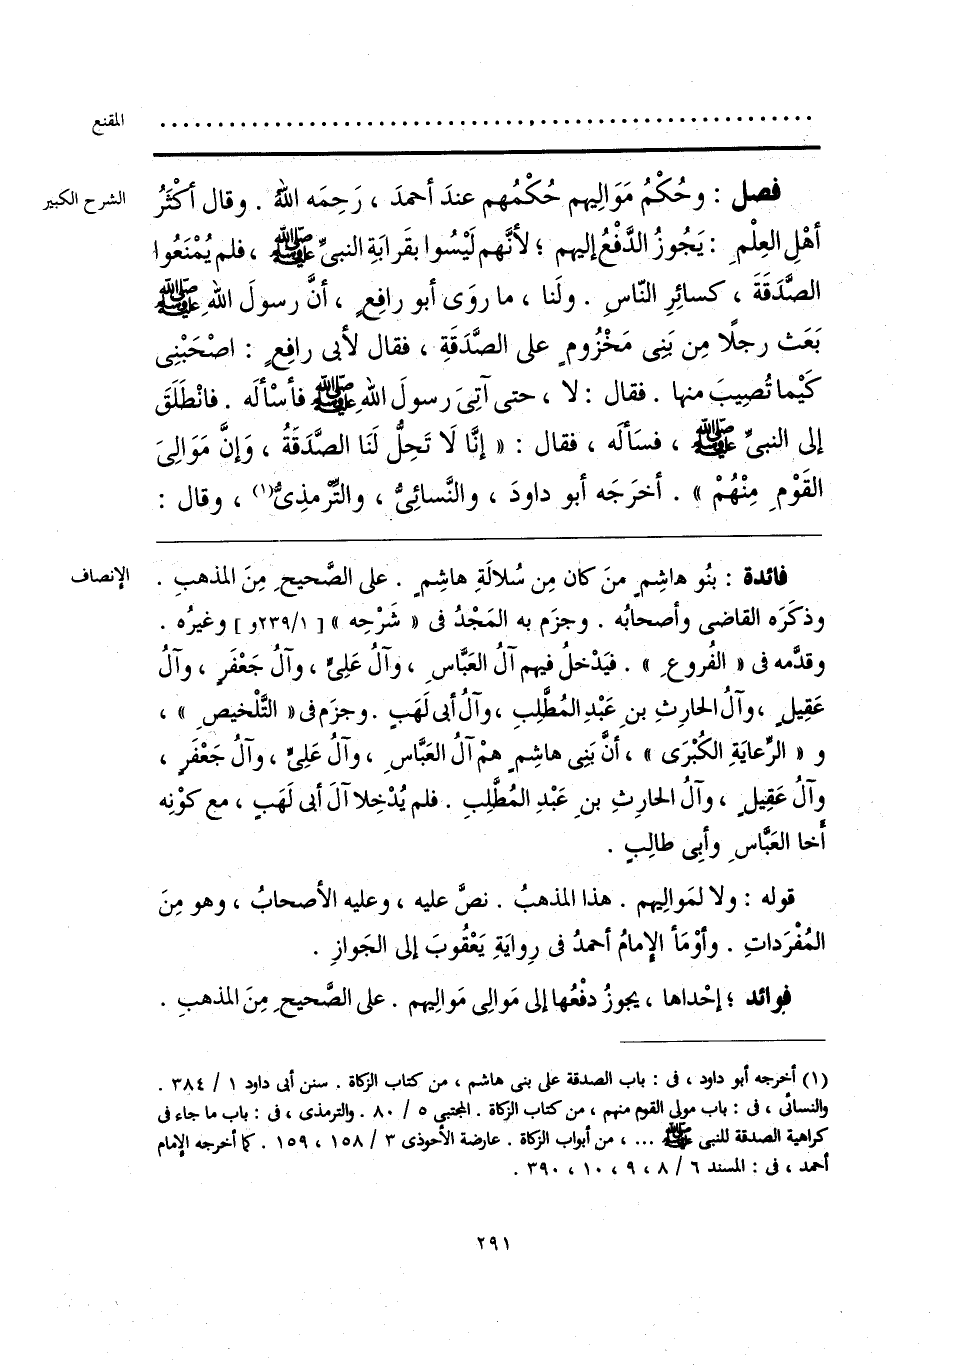 المقنع ........................................................
الشرح الكبير
فصل : وحُكْمُ مَوَالِيهم حُكْمُهم عندَ أحمدَ ، رَحِمَه اللهُ . وقال أكْثَرُ
أهْلِ العِلْمِ : يَجُوزُ الدَّفْعُ إليهم ؛ لأنَّهم لَيْسُوا بقَرابَةِ النبيِّ ﷺ ، فلم يُمْنَعُوا
الصَّدَقَةَ ، كسائِرِ النّاسِ . ولَنا ، ما روَى أبو رافِعٍ ، أنَّ رسولَ اللهِ ﷺ
بَعَث رجلًا مِن بَنِى مَخْزُومٍ على الصَّدَقَةِ ، فقال لأبى رافِعٍ : اصْحَبْنِى
كَيْما تُصِيبَ منها . فقال : لا ، حتى آتِىَ رسولَ اللهِ ﷺ فأسْألَه . فانْطَلَقَ
إلى النبىِّ ﷺ ، فسَألَه ، فقال : « إنَّا لَا تَحِلُّ لَنَا الصَّدَقَةُ ، وَإنَّ مَوَالِىَ
القَوْمِ مِنْهُمْ » . أخرَجَه أبو داودَ ، والنَّسائِىُّ ، والتِّرْمذِىُّ(١) ، وقال :
الإنصاف
فائدة : بنُو هاشِمٍ مَن كان مِن سُلالَةِ هاشِمٍ . على الصَّحيحِ مِنَ المذهبِ .
وذكَرَه القاضى وأصحابُه . وجزَم به المَجْدُ فى « شَرْحِه » [ ٢٣٩/١و ] وغيرُه .
وقدَّمه فى « الفُروعِ » . فيَدْخلُ فيهم آلُ العَبَّاسِ ، وآلُ علِىٍّ ، وآلُ جَعْفَرٍ ، وآلُ
عَقِيلٍ ، وآلُ الحارِثِ بنِ عَبْدِ المُطَّلِبِ ، وآلُ أبى لَهَبٍ . وجزَم فى « التَّلْخيصِ » ،
و « الرِّعايَةِ الكُبْرَى » ، أنَّ بَنِى هاشِمٍ همْ آلُ العَبَّاسِ ، وآلُ عَلِىٍّ ، وآلُ جَعْفَرٍ ،
وآلُ عَقِيلٍ ، وآلُ الحارِثِ بنِ عَبْدِ المُطَّلِبِ . فلم يُدْخِلا آلَ أبى لَهَبٍ ، مع كوْنِه
أخا العَبَّاسِ وأبِى طالِبٍ .
قوله : ولا لمَوالِيهم . هذا المذهبُ . نصَّ عليه ، وعليه الأصحابُ ، وهو مِنَ
المُفْرَداتِ . وأوْمَأ الإمامُ أحمدُ فى رِوايَةِ يَعْقُوبَ إلى الجَوازِ .
فوائد ؛ إحْداها ، يجوزُ دفْعُها إلى مَوالِى مَوالِيهم . على الصَّحيحِ مِنَ المذهبِ .
(١) أخرجه أبو داود ، فى : باب الصدقة على بنى هاشم ، من كتاب الزكاة . سنن أبى داود ١ / ٣٨٤ .
والنسائى ، فى : باب مولى القوم منهم ، من كتاب الزكاة . المجتبى ٥ / ٨٠ . والترمذى ، فى : باب ما جاء فى
كراهية الصدقة للنبى ﷺ ... ، من أبواب الزكاة . عارضة الأحوذى ٣ / ١٥٨ ، ١٥٩ . كما أخرجه الإمام
أحمد ، فى : المسند ٦ / ٨ ، ٩ ، ١٠ ، ٣٩٠ .
٢٩١